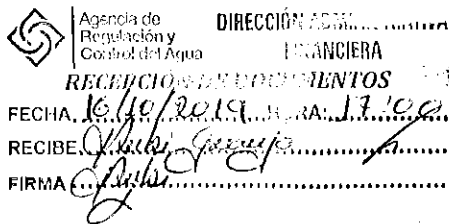 Agencia de
Regulación y
Control del Agua
DIRECCIÓN ADMINISTRATIVA
FINANCIERA
RECEPCIÓN DE DOCUMENTOS
FECHA 16/10/2019 HORA: 17:00
RECIBE
FIRMA